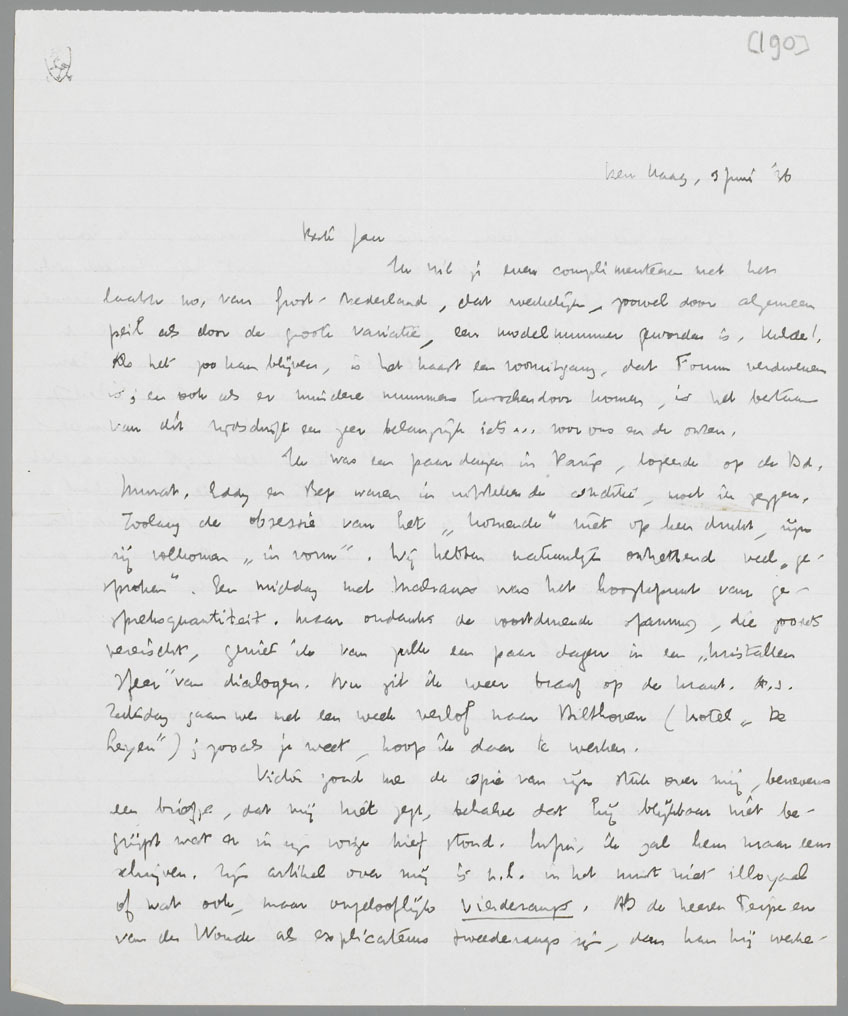 [190]
Den Haag, 3 Juni '36
Beste Jan
Ik wil je even complimenteeren met het
laatste no. van Groot-Nederland, dat werkelijk, zoowel door algemeen
peil als door de groote variatie, een modelnummer geworden is. Hulde!
Als het zoo kan blijven, is het haast een vooruitgang, dat Forum verdwenen
is; en ook als er mindere nummers tusschendoor komen, is het bestaan
van dit tijdschrift een zeer belangrijk iets... voor ons en de onzen.
Ik was een paar dagen in Parijs, logeerde op de Bd.
Murat. Eddy en Bep waren in uitstekende conditie, moet ik zeggen.
Zoolang de obsessie van het „komende" niet op hen drukt, zijn
zij volkomen „in vorm". Wij hebben natuurlijk ontzettend veel „ge-
sproken". Een middag met Malraux was het hoogtepunt van ge-
spreksquantiteit. Maar ondanks de voortdurende spanning, die zooiets
vereischt, geniet ik van zulk een paar dagen in een „kristallen
sfeer" van dialogen. Nu zit ik weer braaf op de krant. A.s.
Zaterdag gaan we met een week verlof naar Bilthoven (hotel „De
Leyen"); zooals je weet, hoop ik daar te werken.
Victor zond me de copie van zijn stuk over mij, benevens
een briefje, dat mij niet zegt, behalve dat hij blijkbaar niet be-
grijpt wat er in mijn vorige brief stond. Enfin, ik zal hem maar eens
schrijven. Zijn artikel over mij is n.l. in het minst niet illoyaal
of wat ook, maar ongelooflijk vierderangs. Als de heeren Terpe en
van der Woude als explicateurs tweederangs zijn, dan kan hij werke-